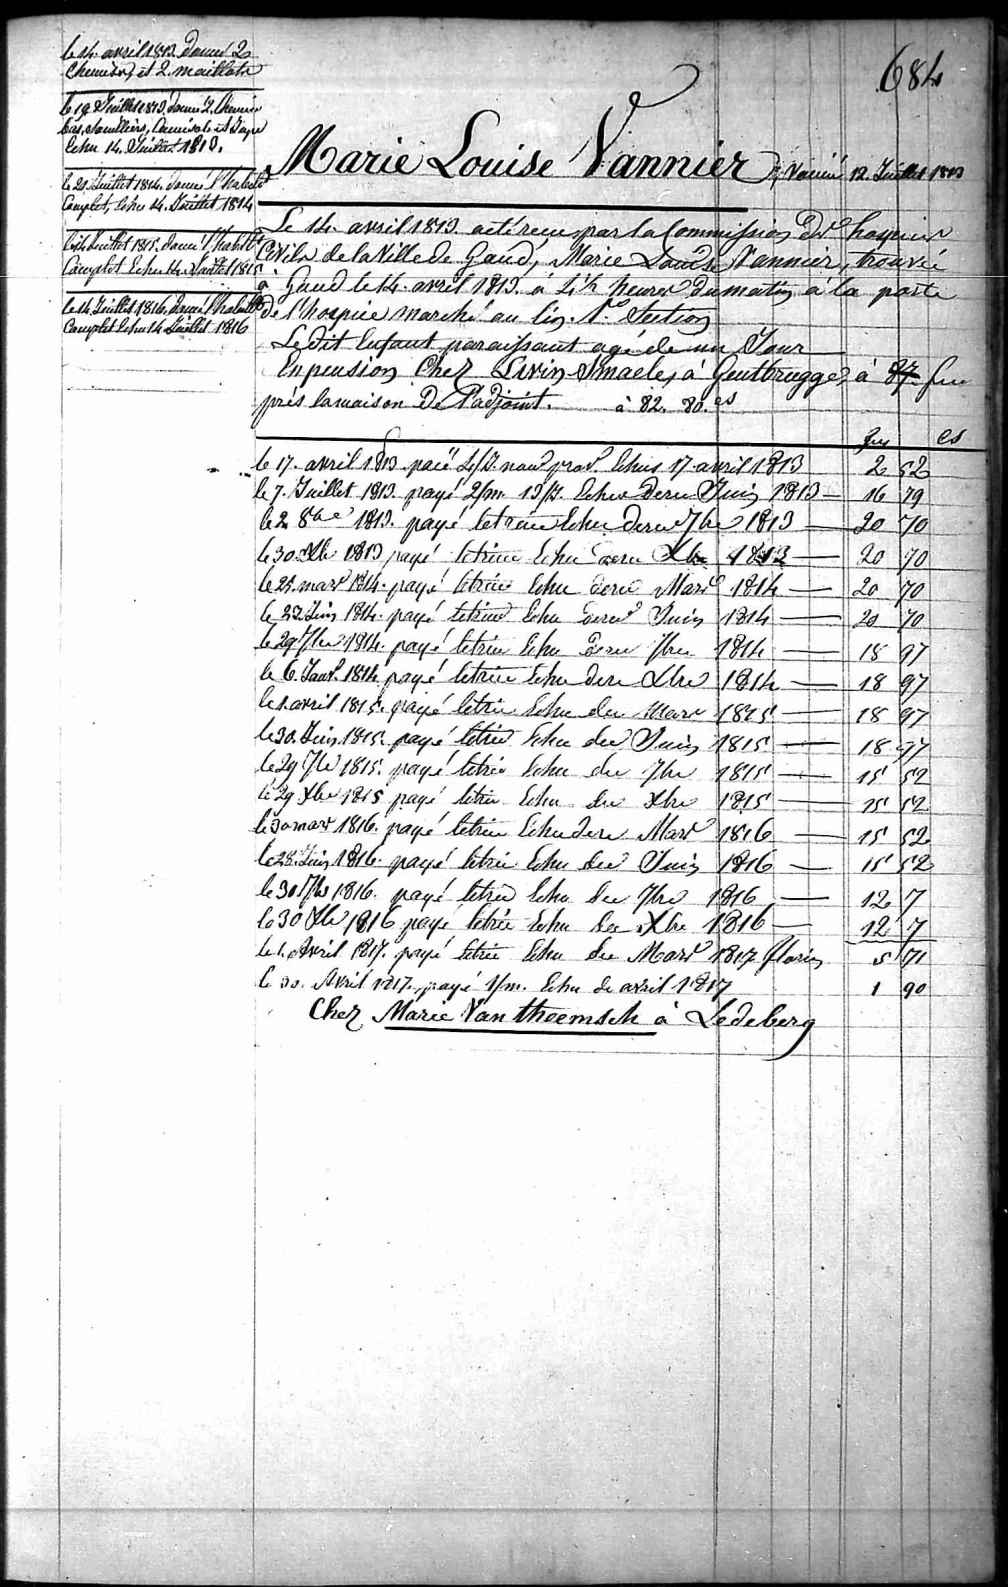 684
le 14 avril 1813. donné 2
Chemises, et 2. maillots
le 19 Juillet 1813. donné 2. Chemises
bas, Souilliers, Camisole et Jupe
Echu 14. Juillet 1813.
le 21. Juillet 1814. donné l'habillt
Complet, Echu 14. Juillet 1814
Juillet 1815. donné l'habillt
Complet Echu 14. Juillet 1815
le 14 Juillet 1816. donné l'habillt
Complet Echu 14 Juillet 1816
Marie Louise Vannier Vacciné 12. Juillet 1813
Le 14. avril 1813. a été reçue par la Commission des hospices
Civils de la Ville de Gand, Marie Louise Vannier, trouvée
à Gand le 14. avril 1813. à 4½ heures du matin à la porte
de l'hospice marché au lin. 1e Section
Le dit Enfant paraissant agé de un Jour
En pension Chez Livin Smaele, à Gentbrugge, à 87 frs
près la maison De l'adjoint. à 82. 80. cs
frs cs
le 17. avril 1813 paié 4/J. nouv prov. Echus 17 avril 1813 2 52
le 7. Juillet 1813. payé 2/m 13/J. Echus Dern Juin 1813 16 79
le 2 8bre 1813. payé le trim Echu dern 7bre 1813 20 70
le 30 Xbr 1813 payé le trim Echu dern Xbre 1813 20 70
le 24. mars 1814. payé le trim Echu dern Mars 1814 20 70
le 23. Juin 1814. payé le trim Echu dern Juin 1814 20 70
le 29 7bre 1814. payé le trim Echu dern 7bre 1814 18 97
le 6. Janv. 1814 payé le trim Echu dern Xbre 1814 18 97
le 1. avril 1815. payé le trim Echu der Mars 1815 18 97
le 30. Juin 1815. payé le trim Echu der Juin 1815 18 97
le 29 7br 1815. payé le trim Echu der 7bre 1815 15 52
le 29 Xbre 1815 payé le trim Echu der Xbre 1815 15 52
le 30 mars 1816. payé le trim Echu dern Mars 1816 15 52
le 28. Juin 1816. payé le trim Echu der Juin 1816 15 52
le 30 7br 1816. payé le trim Echu der 7bre 1816 12 7
le 30 Xbr 1816 payé le trim Echu der Xbre 1816 12 7
le 1. Avril 1817. payé le trim Echu der Mars 1817 florins 5 71
le 30. Avril 1817. payé 1/m. Echu de avril 1817 1 90
Chez Marie Van theemsch à Ledeberg